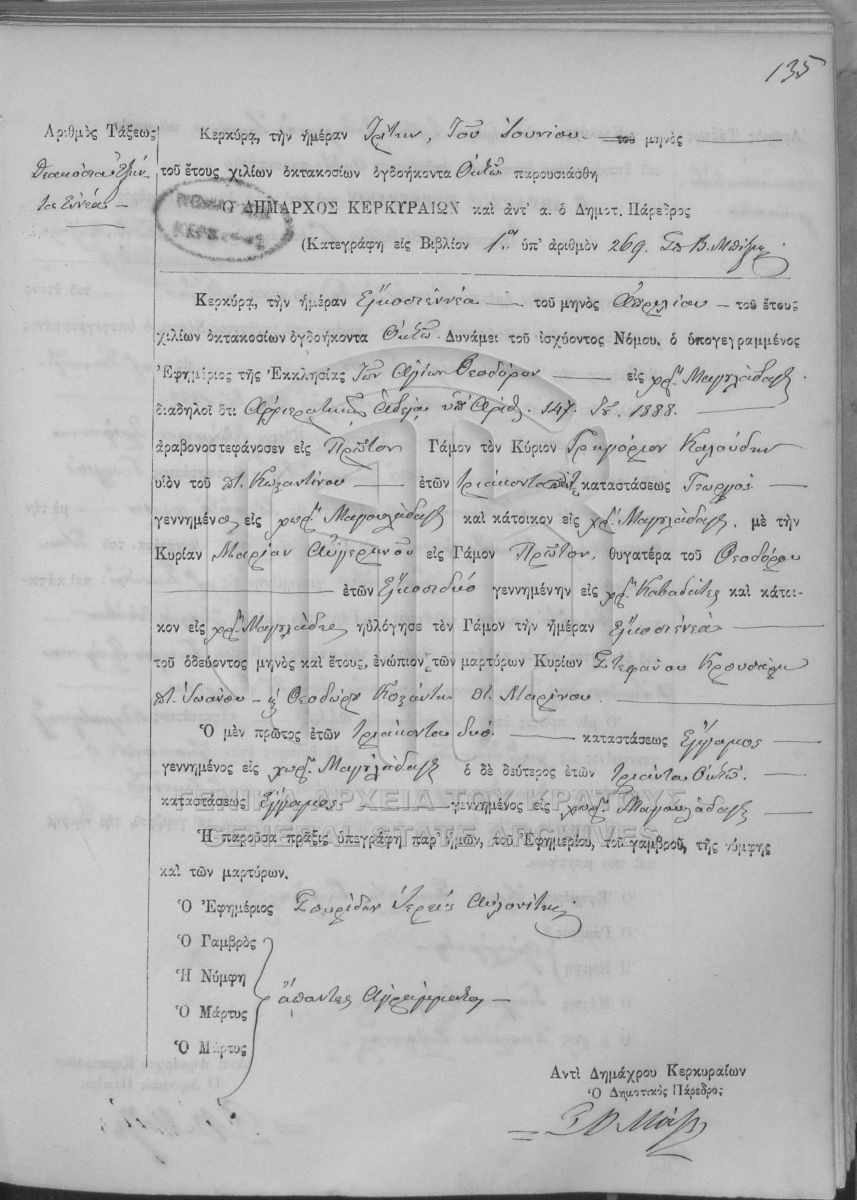 135
Ἀριθμὸς Τάξεως
Διακόσια Ἑξήν-
τα Ἐννέα —
Κερκύρα, τὴν ἡμέραν Τρίτην, Τοῦ Ἰουνίου — τοῦ μηνὸς
τοῦ ἔτους χιλίων ὀκτακοσίων ὀγδοήκοντα Ὀκτὼ παρουσιάσθη
Ὁ ΔΗΜΑΡΧΟΣ ΚΕΡΚΥΡΑΙΩΝ καὶ ἀντ' α. ὁ Δημοτ. Πάρεδρος
(Κατεγράφη εἰς Βιβλίον 1ον ὑπ' ἀριθμὸν 269.
Κερκύρα, τὴν ἡμέραν Εἰκοστεννέα — τοῦ μηνὸς Ἀπριλίου — τοῦ ἔτους
χιλίων ὀκτακοσίων ὀγδοήκοντα Ὀκτὼ. Δυνάμει τοῦ ἰσχύοντος Νόμου, ὁ ὑπογεγραμμένος
Ἐφημέριος τῆς Ἐκκλησίας Τῶν Ἁγίων Θεοδώρων — εἰς χωρ. Μαγουλάδαις
διαδηλοῖ ὅτι Ἀρχιερατικῇ Ἀδείᾳ ὑπ' Ἀριθ. 147. 1888. —
ἀραβονοστεφάνοσεν εἰς Πρῶτον Γάμον τὸν Κύριον Γρηγόριον Καλούδην
υἱὸν τοῦ π. Κωσταντίνου — ἐτῶν τριάκοντα πέντε καταστάσεως Γεωργός —
γεννημένον εἰς χωρ. Μαγουλάδαις καὶ κάτοικον εἰς χωρ. Μαγουλάδαις, μὲ τὴν
Κυρίαν Μαρίαν Αὐγερινοῦ εἰς Γάμον Πρῶτον, θυγατέρα τοῦ Θεοδώρου
— ἐτῶν Εἰκοσιδύο γεννημένην εἰς χωρ. Καβαδάτες καὶ κάτοι-
κον εἰς χωρ. Μαγουλάδες ηὐλόγησε τὸν Γάμον τὴν ἡμέραν Εἰκοστεννέα —
τοῦ ὁδεύοντος μηνὸς καὶ ἔτους, ἐνώπιον τῶν μαρτύρων Κυρίων Στεφάνου
π. Ἰωάννου — κ Θεοδώρου π. Μαρίνου. —
Ὁ μὲν πρῶτος ἐτῶν τριάκοντα δύο — καταστάσεως Ἔγγαμος —
γεννημένος εἰς χωρ. Μαγουλάδαις ὁ δὲ δεύτερος ἐτῶν τριάντα Ὀκτὼ.
καταστάσεως Ἔγγαμος — γεννημένος εἰς χωρ. Μαγουλάδαις —
ΓΕΝΙΚΑ ΑΡΧΕΙΑ ΤΟΥ ΚΡΑΤΟΥΣ
GENERAL STATE ARCHIVES
Ἡ παροῦσα πρᾶξις ὑπεγράφη παρ' ἡμῶν, τοῦ Ἐφημερίου, τοῦ γαμβροῦ, τῆς νύμφης
καὶ τῶν μαρτύρων.
Ὁ Ἐφημέριος Σπυρίδων Ἱερεὺς Αὐλωνίτης
Ὁ Γαμβρὸς
Ἡ Νύμφη
ἅπαντες Ἀγράμματοι —
Ὁ Μάρτυς
Ὁ Μάρτυς
Ἀντὶ Δημάχρου Κερκυραίων
Ὁ Δημοτικὸς Πάρεδρος